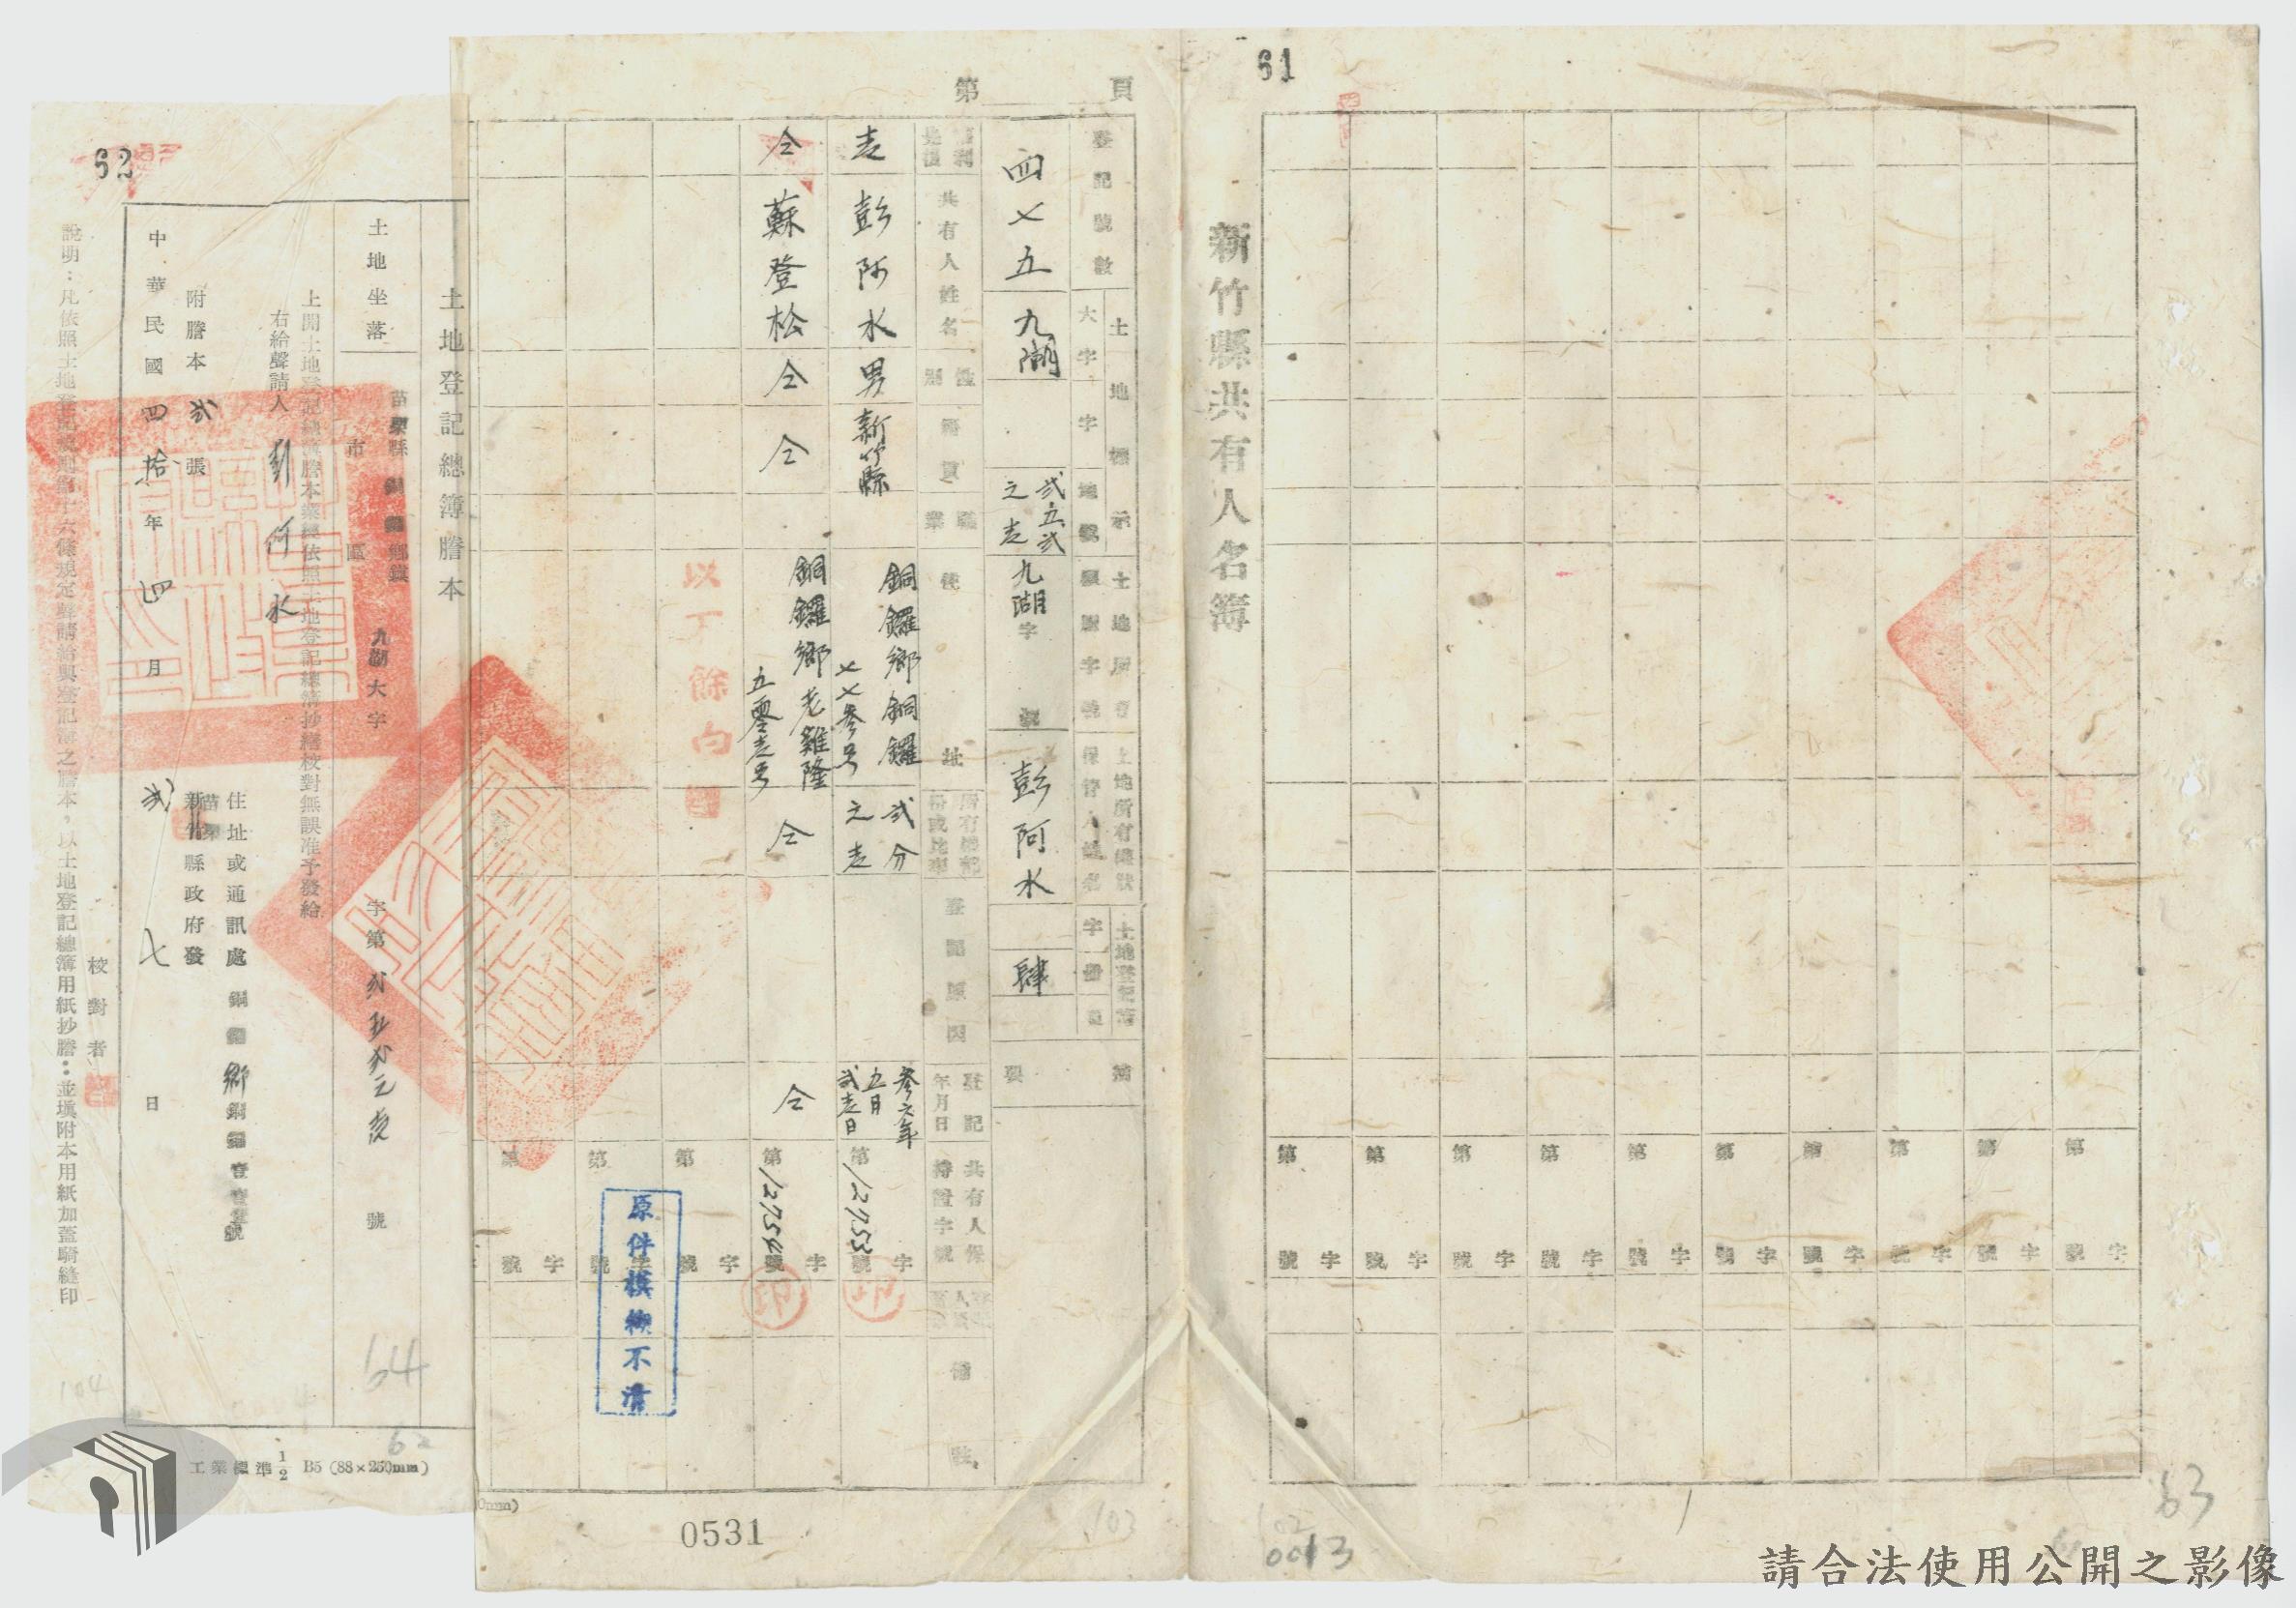 61
新竹縣共有人名簿
第 字 號
第 字 號
第 字 號
第 字 號
第 字 號
第 字 號
第 字 號
第 字 號
第 字 號
第 字 號
63
0013
102
第 頁
登記號數
土地標示
大字
字
地號
土地所有
土地所有權狀
保管人姓名
土地登記簿
字 冊 頁
摘要
四七五
九湖
弍五弍之壱
九湖字 號
彭阿水
肆
權利
共有人姓名
性別
籍貫
職業
住址
所有權部份或比率
登記原因
登記年月日
共有人保持證字號
備註
壱
彭阿水
男
新竹縣
銅鑼鄉銅鑼
七七參号
弍分之壱
參六年五月弍壱日
第 12753 字 號
仝
蘇登松
仝
仝
銅鑼鄉老雞隆
五零壱号
仝
仝
第 12754 字 號
印
印
以下餘白
第 字 號
第 字 號
第 字 號
原件模糊不清
0531
103
62
土地登記總簿謄本
土地坐落
苗栗縣 銅鑼鄉鎮
市 區
九湖大字
字第 弍五弍之壱 號
上開土地登記總簿謄本業經依照土地登記總簿抄繕校對無誤准予發給
右給聲請人 彭阿水
住址或通訊處 銅鑼鄉銅鑼
附謄本 弍 張
苗栗
新竹縣政府發
中華民國 四拾 年 四 月 弍七 日
校對者
說明：凡依照土地登記規則第十六條規定聲請給與登記簿之謄本，以土地登記總簿用紙抄謄：並填附本用紙加蓋騎縫印
64
62
104
工業標準1/2 B5 (88×250mm)
0mm)
請合法使用公開之影像